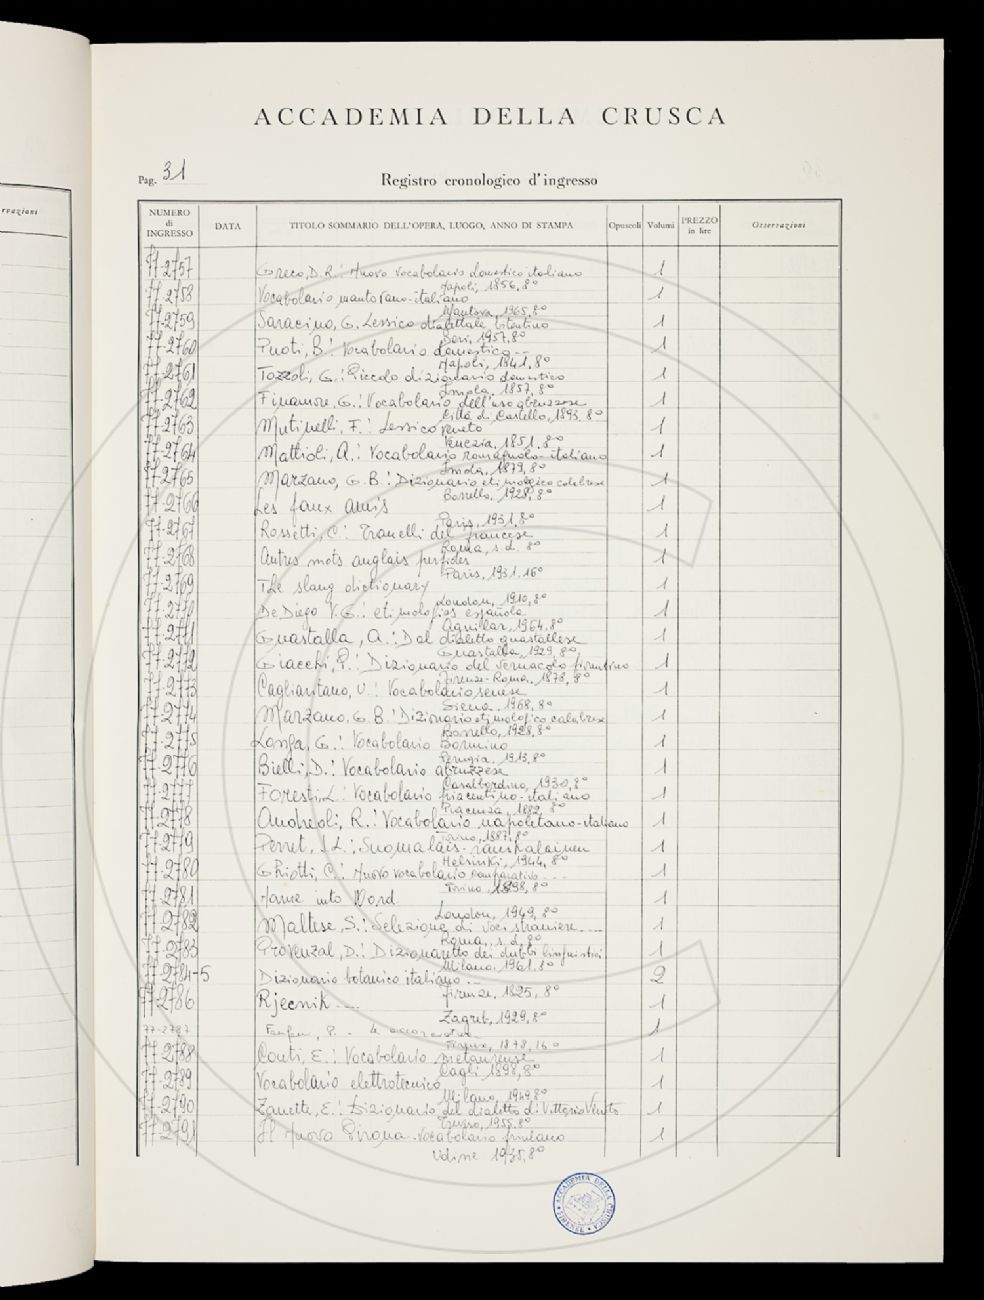 rvazioni
ACCADEMIA DELLA CRUSCA
Pag. 31
Registro cronologico d'ingresso
NUMERO di INGRESSO DATA TITOLO SOMMARIO DELL'OPERA, LUOGO, ANNO DI STAMPA Opuscoli Volumi PREZZO in lire Osservazioni
77-2757 Greco, D.R.: Nuovo vocabolario domestico italiano 1
Napoli, 1856, 8°
77-2758 Vocabolario mantovano-italiano 1
Mantova, 1965, 8°
77-2759 Saracino, G. Lessico dialettale bitontino 1
Bari, 1957, 8°
77-2760 Puoti, B.: Vocabolario domestico -- 1
Napoli, 1841, 8°
77-2761 Tozzoli, G.: Piccolo dizionario domestico 1
Imola, 1857, 8°
77-2762 Finamore, G.: Vocabolario dell'uso abruzzese 1
Città di Castello, 1893, 8°
77-2763 Mutinelli, F.: Lessico veneto 1
Venezia, 1851, 8°
77-2764 Mattioli, A.: Vocabolario romagnolo-italiano 1
Imola, 1879, 8°
77-2765 Marzano, G.B.: Dizionario etimologico calabrese 1
1928, 8°
77-2766 Les faux amis 1
Paris, 1931, 8°
77-2767 Rossetti, C.: Tranelli del francese 1
Roma, s.d. 8°
77-2768 Autres mots anglais perfides 1
Paris, 1931. 16°
77-2769 The slang dictionary 1
London, 1910, 8°
77-2770 De Diego V.G.: etimologías española 1
Aguilar, 1964, 8°
77-2771 Guastalla, A.: Dal dialetto guastallese 1
Guastalla, 1929, 8°
77-2772 Giacchi, P.: Dizionario del vernacolo fiorentino 1
Firenze-Roma, 1878, 8°
77-2773 Cagliaritano, U.: Vocabolario senese 1
Siena, 1968, 8°
77-2774 Marzano, G.B.: Dizionario etimologico calabrese 1
1928, 8°
77-2775 Longa, G.: Vocabolario Bormino 1
Perugia, 1913, 8°
77-2776 Bielli, D.: Vocabolario abruzzese 1
Casalbordino, 1930, 8°
77-2777 Foresti, L.: Vocabolario piacentino-italiano 1
Piacenza, 1882, 8°
77-2778 Andreoli, R.: Vocabolario napoletano-italiano 1
Torino, 1887, 8°
77-2779 Perret, J.L.: Suomalais-ranskalainen 1
Helsinki, 1944, 8°
77-2780 Ghiotti, C.: Nuovo vocabolario comparativo --- 1
Torino, 1898, 8°
77-2781 Name into Word 1
London, 1949, 8°
77-2782 Maltese, S.: Selezione di voci straniere.... 1
Roma, s.d. 8°
77-2783 Provenzal, D.: Dizionaretto dei dubbi linguistici 1
Milano, 1961, 8°
77-2784-5 Dizionario botanico italiano -- 2
Firenze, 1825, 8°
77-2786 Rjecnik.... 1
Zagreb, 1929, 8°
77-2787 Fanfani, P. - 1
Firenze, 1878, 16°
77-2788 Conti, E.: Vocabolario metaurense 1
Cagli 1898, 8°
77-2789 Vocabolario elettrotecnico 1
Milano, 1949, 8°
77-2790 Zanette, E.: Dizionario del dialetto di Vittorio Veneto 1
Treviso, 1955, 8°
77-2791 Il Nuovo Pirona-Vocabolario friulano 1
Udine 1935, 8°
ACCADEMIA DELLA CRUSCA
FIRENZE